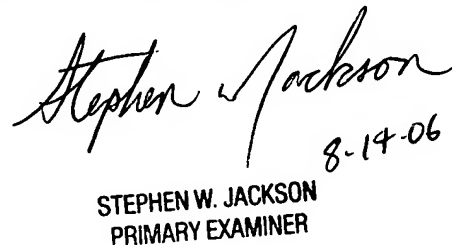 Stephen W Jackson
8-14-06
STEPHEN W. JACKSON
PRIMARY EXAMINER